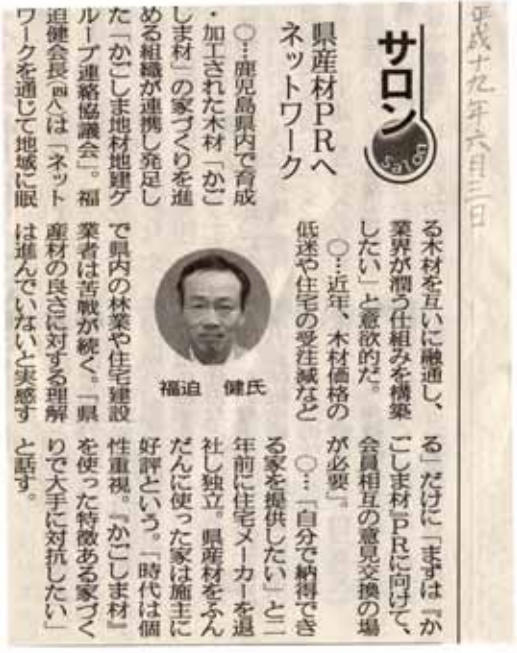 平成十九年六月三日
サロン
salon
県産材PRへ
ネットワーク
○…鹿児島県内で育成
・加工された木材「かご
しま材」の家づくりを進
める組織が連携し発足し
た「かごしま地材地建グ
ループ連絡協議会」。福
迫健会長(四八)は「ネット
ワークを通じて地域に眠
る木材を互いに融通し、
業界が潤う仕組みを構築
したい」と意欲的だ。
○…近年、木材価格の
低迷や住宅の受注減など
で県内の林業や住宅建設
業者は苦戦が続く。「県
産材の良さに対する理解
は進んでいないと実感す
福迫 健氏
る」だけに「まずは『か
ごしま材』PRに向けて、
会員相互の意見交換の場
が必要」。
○…「自分で納得でき
る家を提供したい」と二
年前に住宅メーカーを退
社し独立。県産材をふん
だんに使った家は施主に
好評という。「時代は個
性重視。『かごしま材』
を使った特徴ある家づく
りで大手に対抗したい」
と話す。